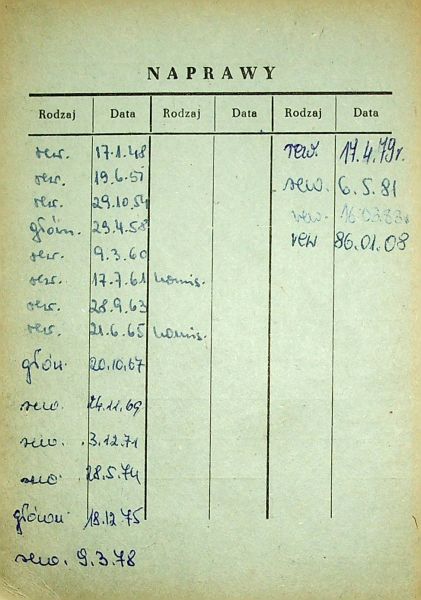 NAPRAWY
Rodzaj Data Rodzaj Data Rodzaj Data
rew. 17.1.48
rew. 19.6.51
rew. 29.10.54
główn. 29.4.58
rew. 9.3.60
rew. 17.7.61 komis.
rew. 28.9.63
rew. 21.6.65 komis.
główn. 20.10.67
rew. 24.11.69
rew. 3.12.71
rew. 28.5.74
główn 18.12.75
rew. 9.3.78
rew. 17.4.79r.
rew. 6.5.81
rew.
rew 86.01.08